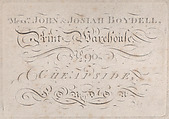 Messrs. JOHN & JOSIAH BOYDELL,
Print Warehouse
No. 90.
CHEAPSIDE
LONDON